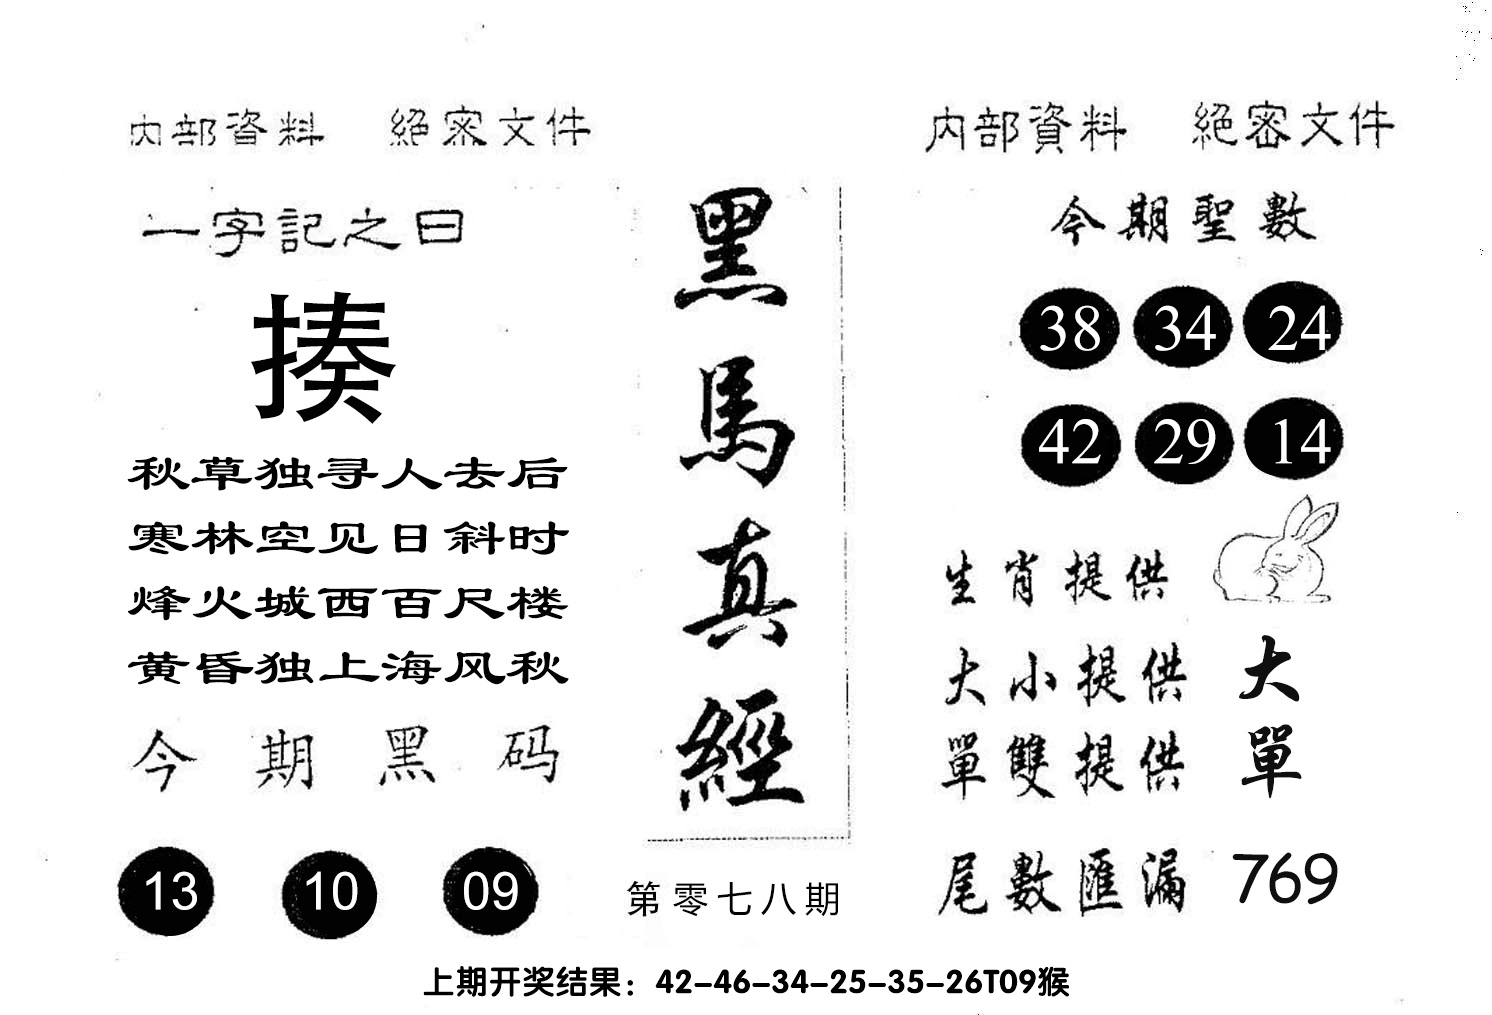 內部資料 絕密文件
一字記之曰
揍
秋草独寻人去后
寒林空见日斜时
烽火城西百尺楼
黄昏独上海风秋
今期黑码
13 10 09
黑馬真經
第零七八期
內部資料 絕密文件
今期聖數
38 34 24
42 29 14
生肖提供
大小提供 大
單雙提供 單
尾數匯漏 769
上期开奖结果：42-46-34-25-35-26T09猴